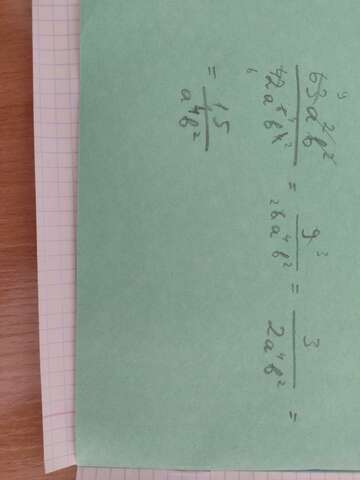 63a²b² / 42a b⁴ = 9 / 6a⁴b² = 3 / 2a⁴b² =
= 1,5 / a⁴b²